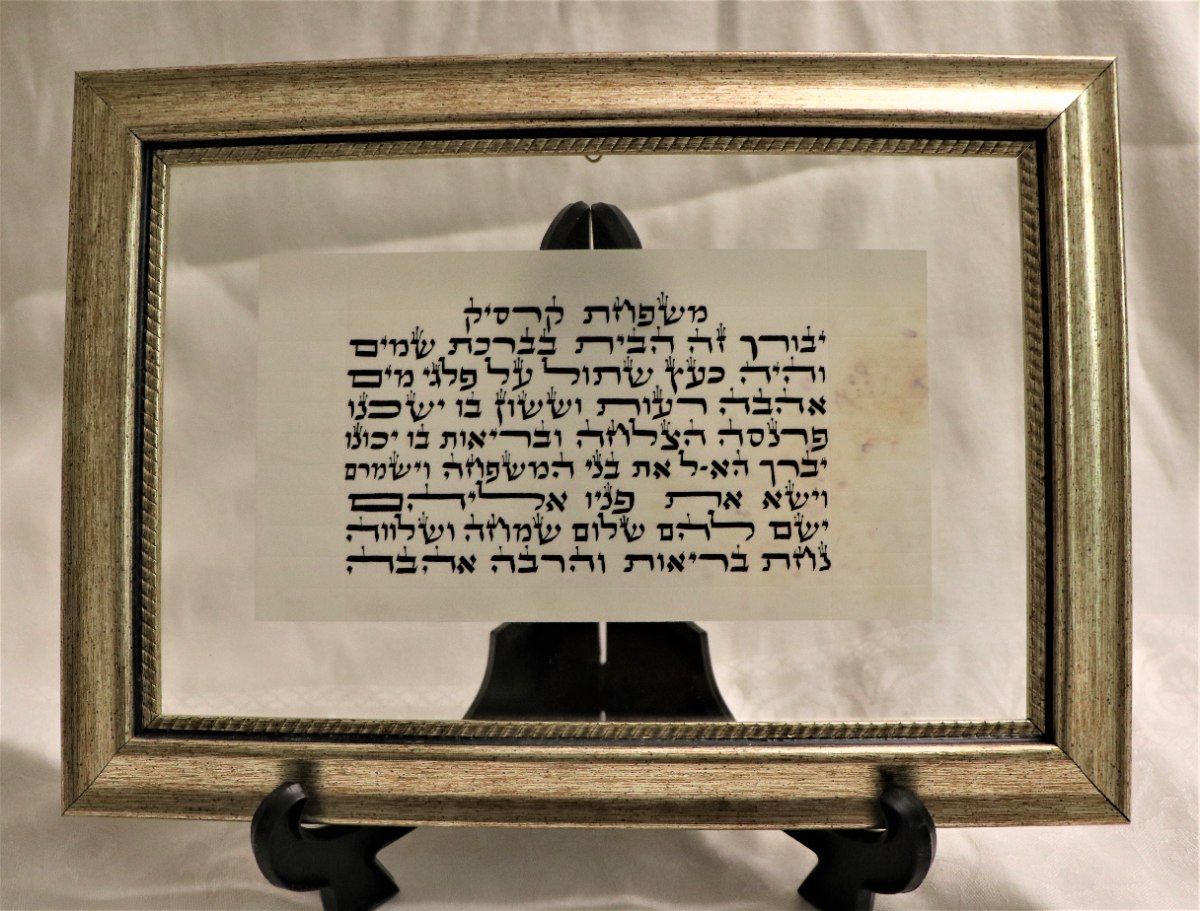 משפחת קרסיק
יבורך זה הבית בברכת שמים
והיה כעץ שתול על פלגי מים
אהבה רעות וששון בו ישכנו
פרנסה הצלחה ובריאות בו יכונו
יברך הא-ל את בני המשפחה וישמרם
וישא את פניו אליהם
ישם להם שלום שמחה ושלווה
נחת בריאות והרבה אהבה